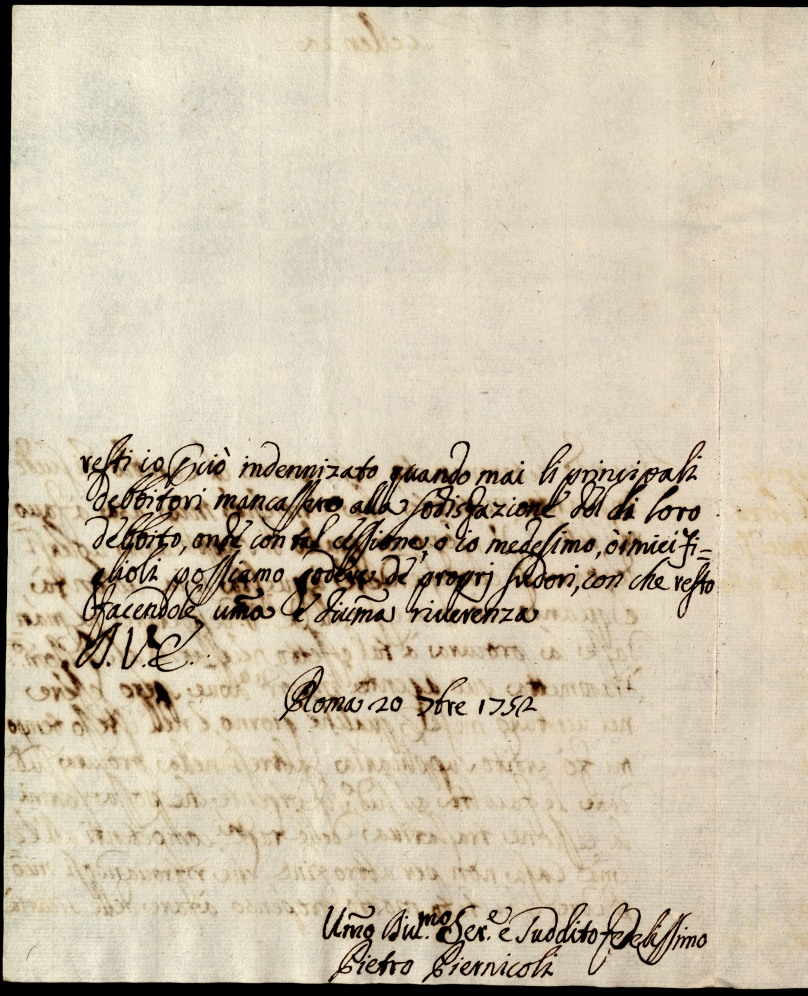 resti io perciò indennizato quando mai li principali
debbitori mancassero alla sodisfazione del di loro
debbito, onde con tal cessione, ò io medesimo, ò i miei fi=
glioli possiamo godere de proprj sudori, con che resto
facendole um̃a e dium̃a riverenza
D. V. E.
Roma 20 7bre 1752
Um̃o Diu.mo Ser.e e Suddito fedelissimo
Pietro Piernicoli